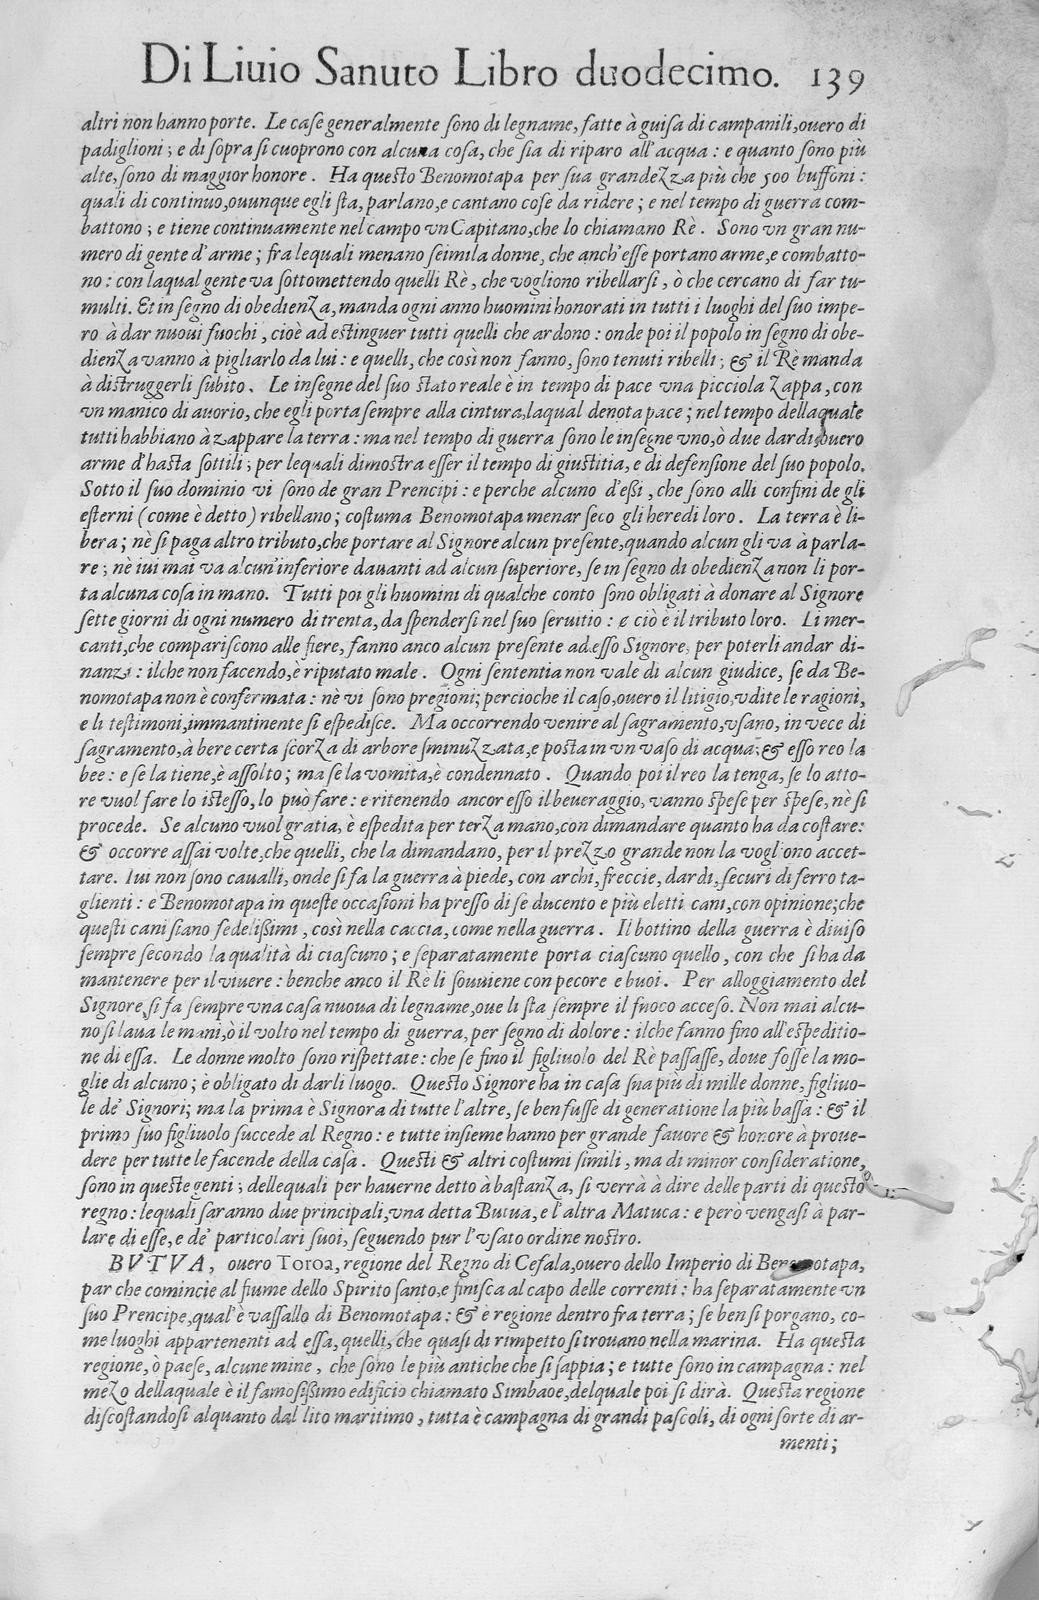 Di Liuio Sanuto Libro duodecimo. 139
altri non hanno porte. Le case generalmente sono di legname, fatte à guisa di campanili, ouero di
padiglioni; e di sopra si cuoprono con alcuna cosa, che sia di riparo all'acqua: e quanto sono più
alte, sono di maggior honore. Ha questo Benomotapa per sua grandezza più che 500 buffoni:
quali di continuo, ouunque egli sta, parlano, e cantano cose da ridere; e nel tempo di guerra com-
battono; e tiene continuamente nel campo vn Capitano, che lo chiamano Rè. Sono vn gran nu-
mero di gente d'arme; fra lequali menano seimila donne, che anch'esse portano arme, e combatto-
no: con laqual gente va sottomettendo quelli Rè, che vogliono ribellarsi, ò che cercano di far tu-
multi. Et in segno di obedienza, manda ogni anno huomini honorati in tutti i luoghi del suo impe-
ro à dar nuoui fuochi, cioè ad estinguer tutti quelli che ardono: onde poi il popolo in segno di obe-
dienza vanno à pigliarlo da lui: e quelli, che così non fanno, sono tenuti ribelli; & il Rè manda
à distruggerli subito. Le insegne del suo stato reale è in tempo di pace vna picciola zappa, con
vn manico di auorio, che egli porta sempre alla cintura, laqual denota pace; nel tempo dellaquale
tutti habbiano à zappare la terra: ma nel tempo di guerra sono le insegne vno, ò due dardi, ouero
arme d'hasta sottili; per lequali dimostra esser il tempo di giustitia, e di defensione del suo popolo.
Sotto il suo dominio vi sono de gran Prencipi: e perche alcuno d'essi, che sono alli confini de gli
esterni (come è detto) ribellano; costuma Benomotapa menar seco gli heredi loro. La terra è li-
bera; nè si paga altro tributo, che portare al Signore alcun presente, quando alcun gli va à parla-
re; nè iui mai va alcun'inferiore dauanti ad alcun superiore, se in segno di obedienza non li por-
ta alcuna cosa in mano. Tutti poi gli huomini di qualche conto sono obligati à donare al Signore
sette giorni di ogni numero di trenta, da spendersi nel suo seruitio: e ciò è il tributo loro. Li mer-
canti, che compariscono alle fiere, fanno anco alcun presente ad esso Signore, per poterli andar di-
nanzi: ilche non facendo, è riputato male. Ogni sententia non vale di alcun giudice, se da Be-
nomotapa non è confermata: nè vi sono pregioni; percioche il caso, ouero il litigio, vdite le ragioni,
e li testimoni, immantinente si espedisce. Ma occorrendo venire al sagramento, vsano, in vece di
sagramento, à bere certa scorza di arbore sminuzzata, e posta in vn vaso di acqua; & esso reo la
bee: e se la tiene, è assolto; ma se la vomita, è condennato. Quando poi il reo la tenga, se lo atto-
re vuol fare lo istesso, lo può fare: e ritenendo ancor esso il beueraggio, vanno spese per spese, nè si
procede. Se alcuno vuol gratia, è espedita per terza mano, con dimandare quanto ha da costare:
& occorre assai volte, che quelli, che la dimandano, per il prezzo grande non la vogliono accet-
tare. Iui non sono caualli, onde si fa la guerra à piede, con archi, freccie, dardi, securi di ferro ta-
glienti: e Benomotapa in queste occasioni ha presso di se ducento e più eletti cani, con opinione; che
questi cani siano fedelissimi, così nella caccia, come nella guerra. Il bottino della guerra è diuiso
sempre secondo la qualità di ciascuno; e separatamente porta ciascuno quello, con che si ha da
mantenere per il viuere: benche anco il Rè li souuiene con pecore e buoi. Per alloggiamento del
Signore, si fa sempre vna casa nuoua di legname, oue li sta sempre il fuoco acceso. Non mai alcu-
no si laua le mani, ò il volto nel tempo di guerra, per segno di dolore: ilche fanno fino all'espeditio-
ne di essa. Le donne molto sono rispettate: che se fino il figliuolo del Rè passasse, doue fosse la mo-
glie di alcuno; è obligato di darli luogo. Questo Signore ha in casa sua più di mille donne, figliuo-
le de' Signori; ma la prima è Signora di tutte l'altre, se ben fusse di generatione la più bassa: & il
primo suo figliuolo succede al Regno: e tutte insieme hanno per grande fauore & honore à proue-
dere per tutte le facende della casa. Questi & altri costumi simili, ma di minor consideratione,
sono in queste genti; dellequali per hauerne detto à bastanza, si verrà à dire delle parti di questo
regno: lequali saranno due principali, vna detta Butua, e l'altra Matuca: e però vengasi à par-
lare di esse, e de' particolari suoi, seguendo pur l'vsato ordine nostro.
BVTVA, ouero Toroa, regione del Regno di Cefala, ouero dello Imperio di Benomotapa,
par che comincie al fiume dello Spirito santo, e finisca al capo delle correnti: ha separatamente vn
suo Prencipe, qual'è vassallo di Benomotapa: & è regione dentro fra terra; se ben si porgano, co-
me luoghi appartenenti ad essa, quelli, che quasi di rimpetto si trouano nella marina. Ha questa
regione, ò paese, alcune mine, che sono le più antiche che si sappia; e tutte sono in campagna: nel
mezo dellaquale è il famosissimo edificio chiamato Simbaoe, delquale poi si dirà. Questa regione
discostandosi alquanto dal lito maritimo, tutta è campagna di grandi pascoli, di ogni sorte di ar-
menti;